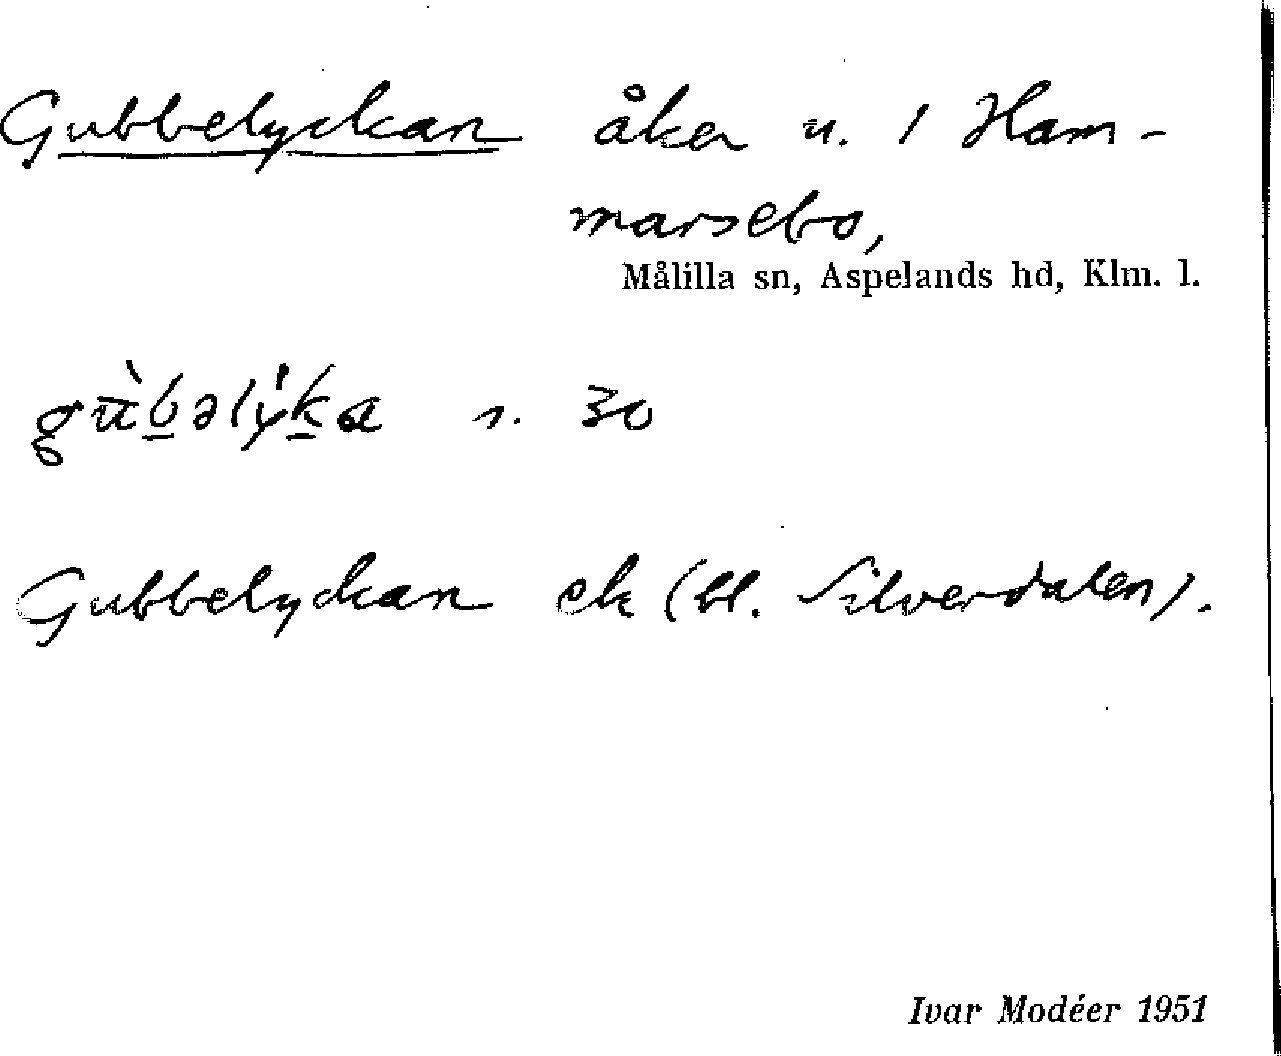 Gubbelyckan åker n. 1 Ham-
marsebo,
Målilla sn, Aspelands hd, Klm. l.
gùb̲əlýk̲a s. 30
Gubbelyckan ek (bl. Silverdalen).
Ivar Modéer 1951